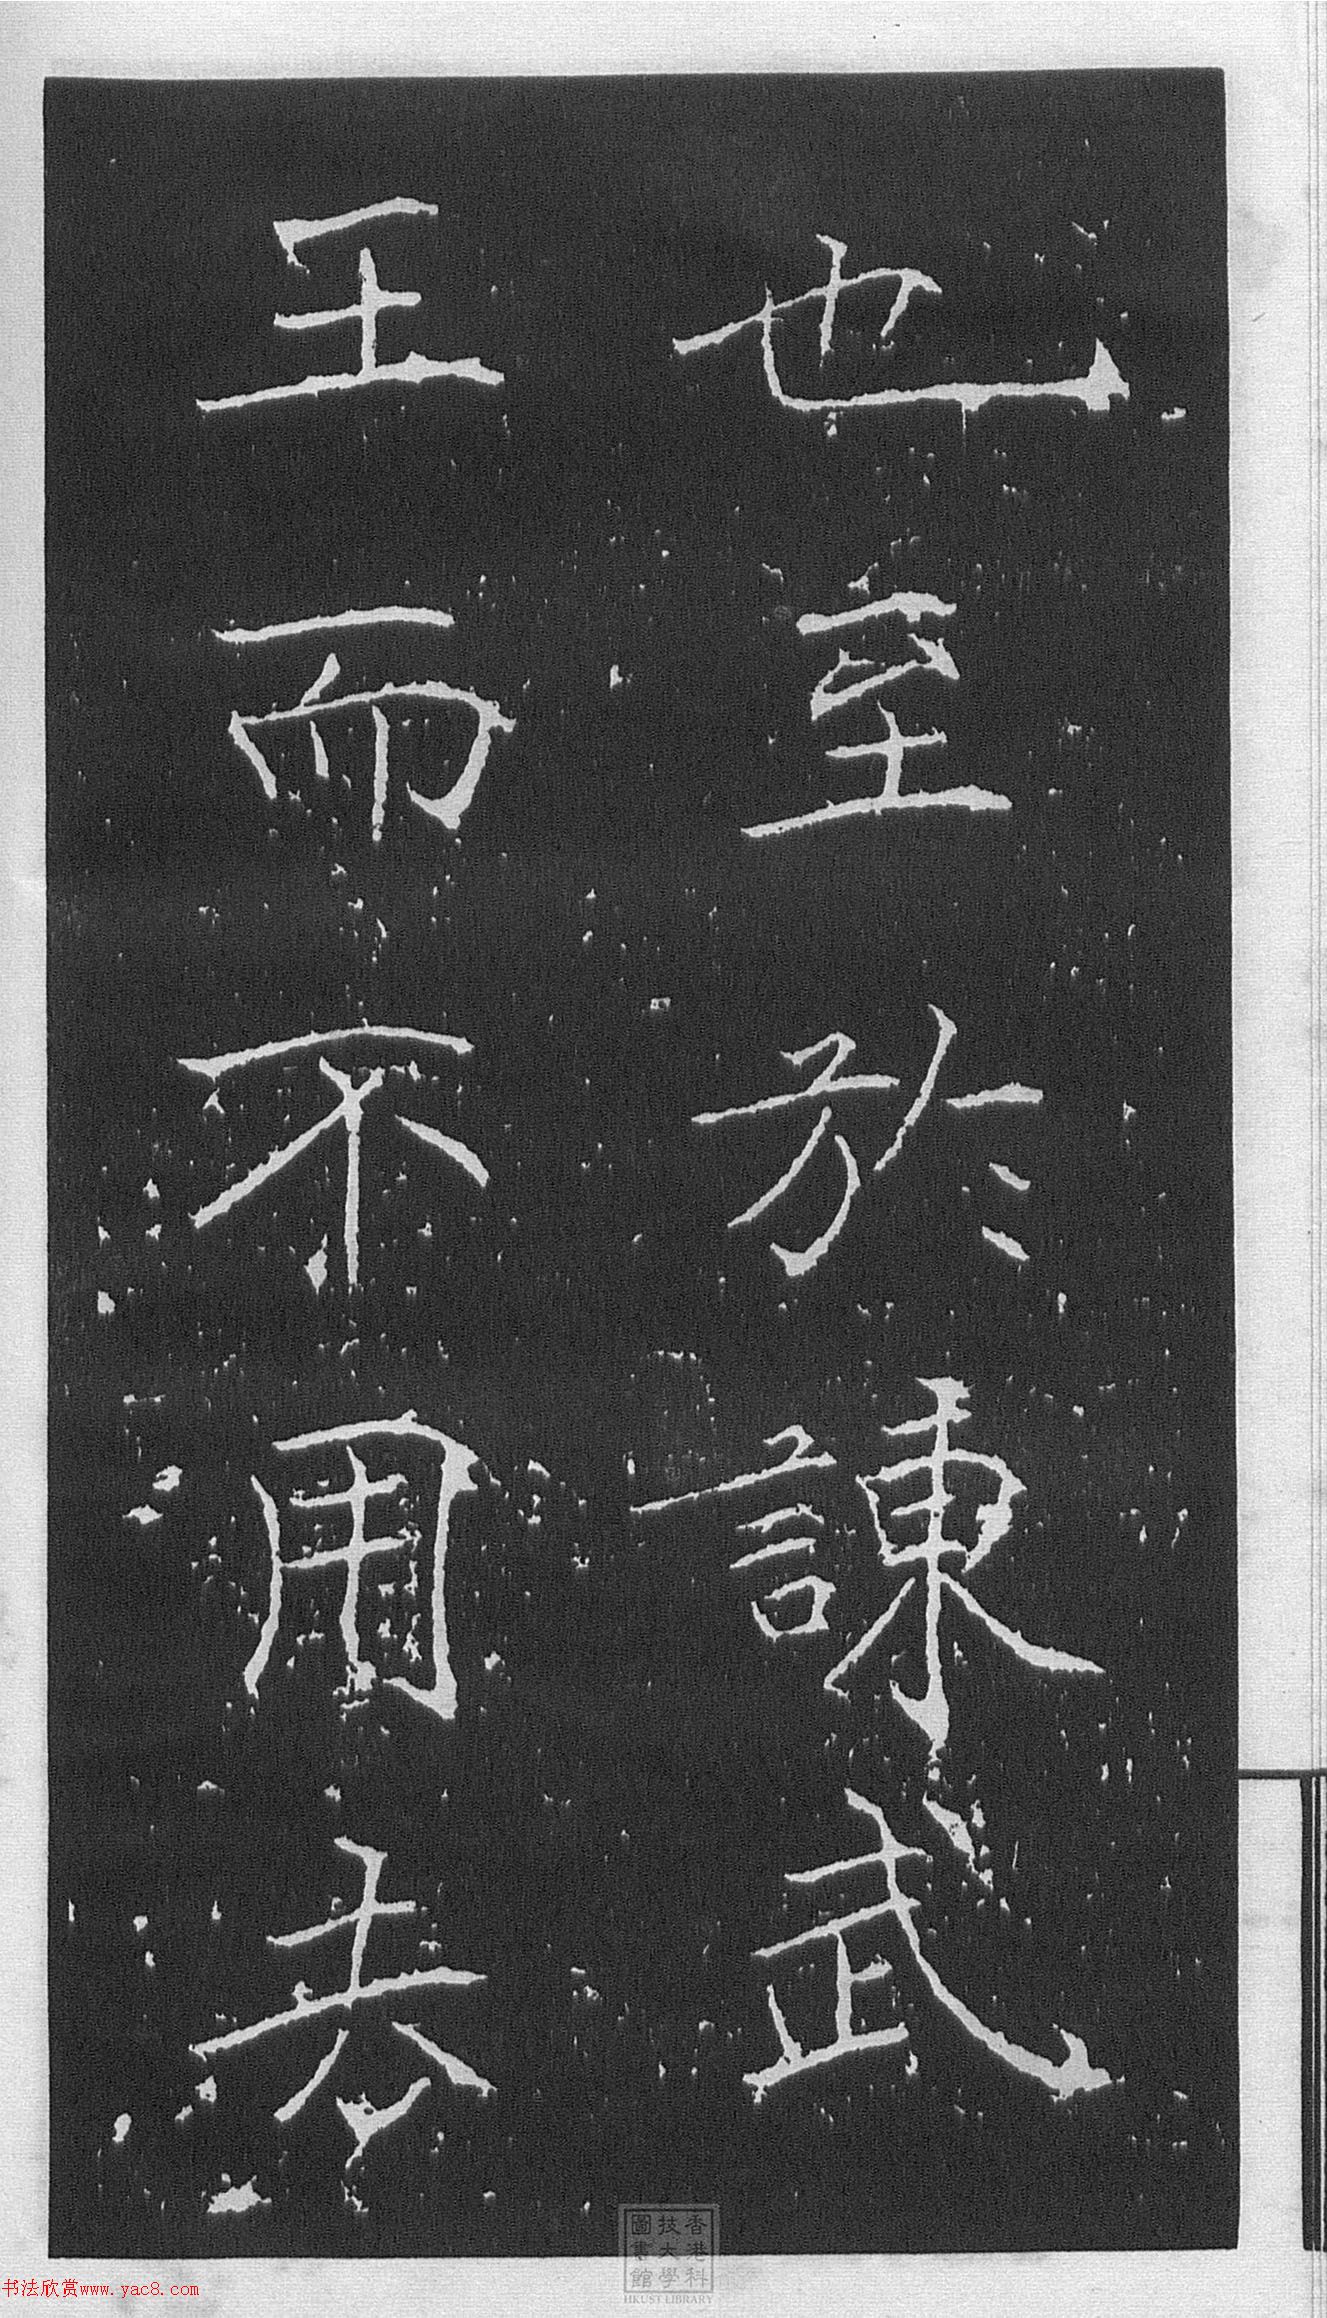 也至於諫武
王而不用去
香港科
技大學
圖書館
HKUST LIBRARY
书法欣赏www.yac8.com